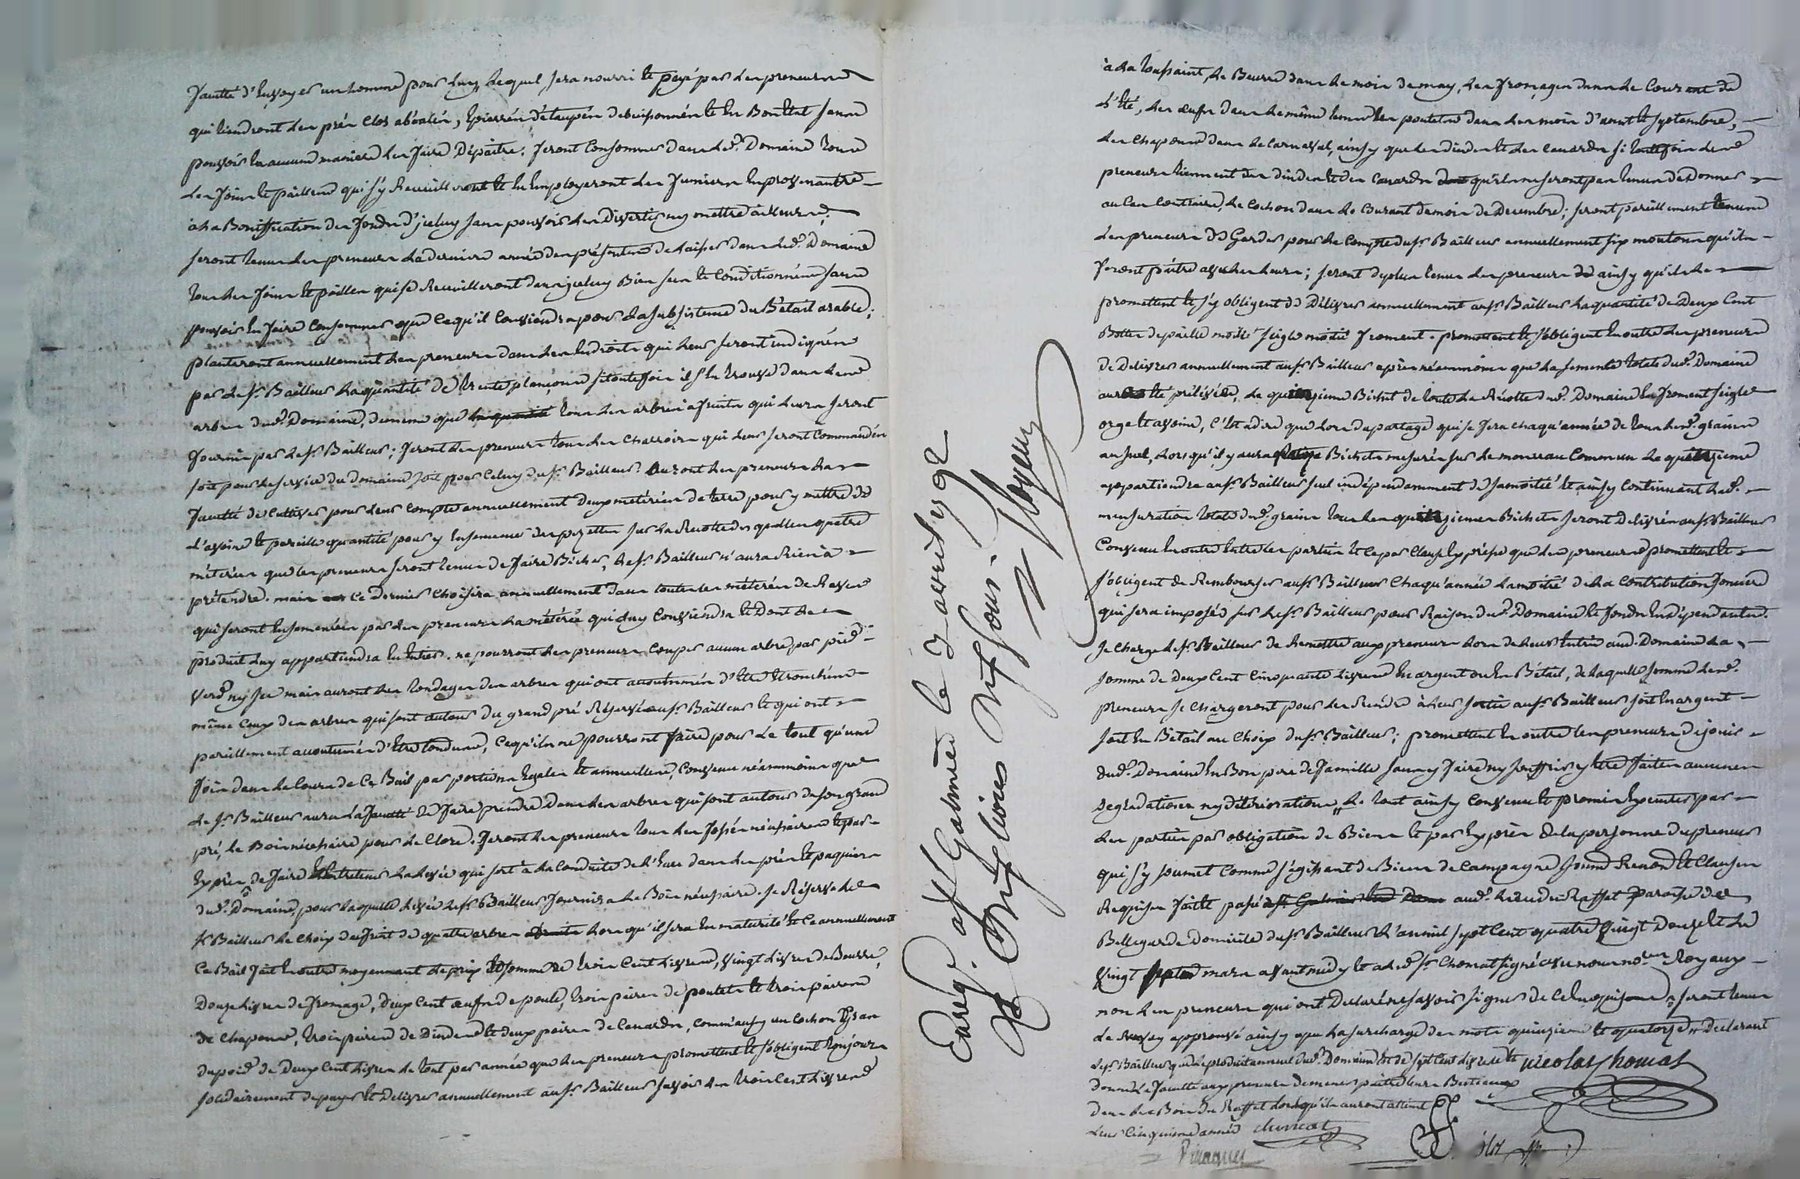 faculté d'envoyer un homme pour luy lequel sera nourri et payé par les preneurs
qui tiendront les prés clos abéalés, épierrés étaupés debuissonnés et en bon état sans
pouvoir en aucune maniere les faire dépaitre. feront consommer dans led. Domaine tous
les foins et paillens qui s'y recueilleront et en employeront les fumiers en provenants
à la bonification des fonds d'iceluy sans pouvoir les divertir ny mettre ailleurs,
seront tenus les preneurs la derniere année des présentes de laisser dans led. Domaine
tous les foins et pailles qui se recueilleront dans iceluy bien secs et conditionnés sans
pouvoir en faire consommer que ce qu'il conviendra pour la subsistance du Bétail arable;
planteront annuellement les preneurs dans les endroits qui leurs seront indiqués
par led. sr. Bailleur la quantité de trente plançons si toutefois il s'en trouve dans les
arbres dud. Domaine, de meme que tous les arbres à fruits qui leurs seront
fournis par led. sr. Bailleur; feront les preneurs tous les charrois qui leurs seront commandés
soit pour le service du domaine soit pour celuy dud. sr. Bailleur. auront les preneurs la
faculté de cultiver pour leur compte annuellement deux metérées de terre pour y mettre de
l'avoine et pareille quantité pour y ensemencer des pezettes sur la recolte desquelles quatre
métérées que les preneurs seront tenus de faire bécher, led. sr. Bailleur n'aura rien à
prétendre. mais ce dernier choisira annuellement dans toutes les métérées de raves
qui seront ensemencées par les preneurs la métérée qui luy conviendra et dont le
produit luy appartiendra en entier. ne pourront les preneurs couper aucun arbre par pied
verd ny sec mais auront les tondages des arbres qui ont accoutumés d'etre ébranchés
même ceux des arbres qui sont autour du grand pré réservé aud. sr. Bailleur et qui ont
pareillement accoutumé d'être tondus, ce qu'ils ne pourront faire pour le tout qu'une
fois dans le cours de ce Bail par portions égales et annuelles, convenu néanmoins que
led. sr. Bailleur aura la faculté de faire prendre dans les arbres qui sont autour de son grand
pré, le bois nécessaire pour le clore. feront les preneurs tous les fossés nécessaires et par
exprès de faire la levée qui sert à la conduite de l'eau dans les prés et paquiers
dud. Domaine, pour laquelle levée led. sr. Bailleur fournira le Bois nécessaire. se réserve led.
sr. Bailleur le choix du fruit de quatre arbres lors qu'il sera en maturité et ce annuellement
ce Bail fait en outre moyennant le prix et somme de trois cent livres, vingt livres de Beurre,
douze livres de fromage, deux cent oeufs de poule, trois paires de poulets et trois paires
de chapons, trois paires de dindes et deux paires de canards, comm'aussy un cochon gras
du poid de deux cent livres le tout par année que les preneurs promettent et s'obligent toujours
solidairement de payer et delivrer annuellement aud. sr. Bailleur savoir les trois cent livres
Enreg. à St Galmier le 3 avril 1792
R. Dix livres dix sous.
Royeux
à la toussaint, le Beurre dans le mois de may, les fromages dans le courant de
l'été, les oeufs dans le même tems les poulets dans les mois d'aoust et septembre,
les chapons dans le carnaval, ainsy que les dindes et les canards si toutefois lesd.
preneurs tiennent des dindes et des canards qu'ils ne seront pas tenus de donner
au cas contraire, le cochon dans le courant du mois de decembre; seront pareillement tenus
les preneurs de garder pour le compte dud. sr. Bailleur annuellement six moutons qu'ils
feront paitre avec les leurs; seront de plus tenus les preneurs ainsy qu'ils le
promettent et s'y obligent de delivrer annuellement aud. sr. Bailleur la quantité de deux cent
bottes de paille moitié seigle moitié froment. promettent et s'obligent en outre les preneurs
de delivrer annuellement aud. sr. Bailleur après néanmoins que la semence totale dud. Domaine
aura été prélevée, le quinzieme Bichet de toute la recolte dud. Domaine en froment seigle
orge et avoine, c'est à dire que lors du partage qui se fera chaqu'année de tous lesd. grains
au suel, lorsqu'il y aura Bichets mesurés sur le monceau commun le quinzieme
appartiendra aud. sr. Bailleur seul indépendamment de sa moitié et ainsy continuant lad.
mensuration totale dud. grains tous les quinziemes Bichets seront delivrés aud. sr. Bailleur
Convenu en outre entre les parties et ce par clause expresse que les preneurs promettent et
s'obligent de rembourser aud. sr. Bailleur chaqu'année la moitié de la contribution fonciere
qui sera imposée sur led. sr. Bailleur pour raison dud. Domaine et fonds en dépendants.
se charge led. sr. Bailleur de remettre aux preneurs lors de leur entrée aud. Domaine la
somme de deux cent cinquante livres en argent ou en Bétail, de laquelle somme lesd.
preneurs se chargeront pour les rendre à leur sortie aud. sr. Bailleur soit en argent
soit en Bétail au choix dud. sr. Bailleur; promettent en outre les preneurs de jouir
dud. Domaine en Bon pere de famille sans y faire ny souffrir y être faites aucunes
dégradations ny détériorations, le tout ainsy convenu et promis executer par
les parties par obligation de Biens et par exprès de la personne du preneur
qui s'y soumet comme s'agissant de Biens de campagne soumis renonc. et clauses
requises fait et passé aud. lieu du Raffet paroisse de
Bellegarde domicile dud. sr. Bailleur l'an mil sept cent quatre vingt douze et le
vingt mars avant midy et a led. sr. Chomat signé avec nous no.res royaux
non les preneurs qui ont declaré ne savoir signer de ce enquis seront tenus
le renvoy approuvé ainsy que la surcharge des mots quinzieme et quatorze declarant
led. sr. Bailleur que le produit annuel dud. Domaine est de sept cent livres et
donne la faculté aux preneurs de mener paitre leurs Bestiaux
dans les Bois du Raffet lorsqu'ils auront atteint
leur cinquieme année
nicolas Chomat